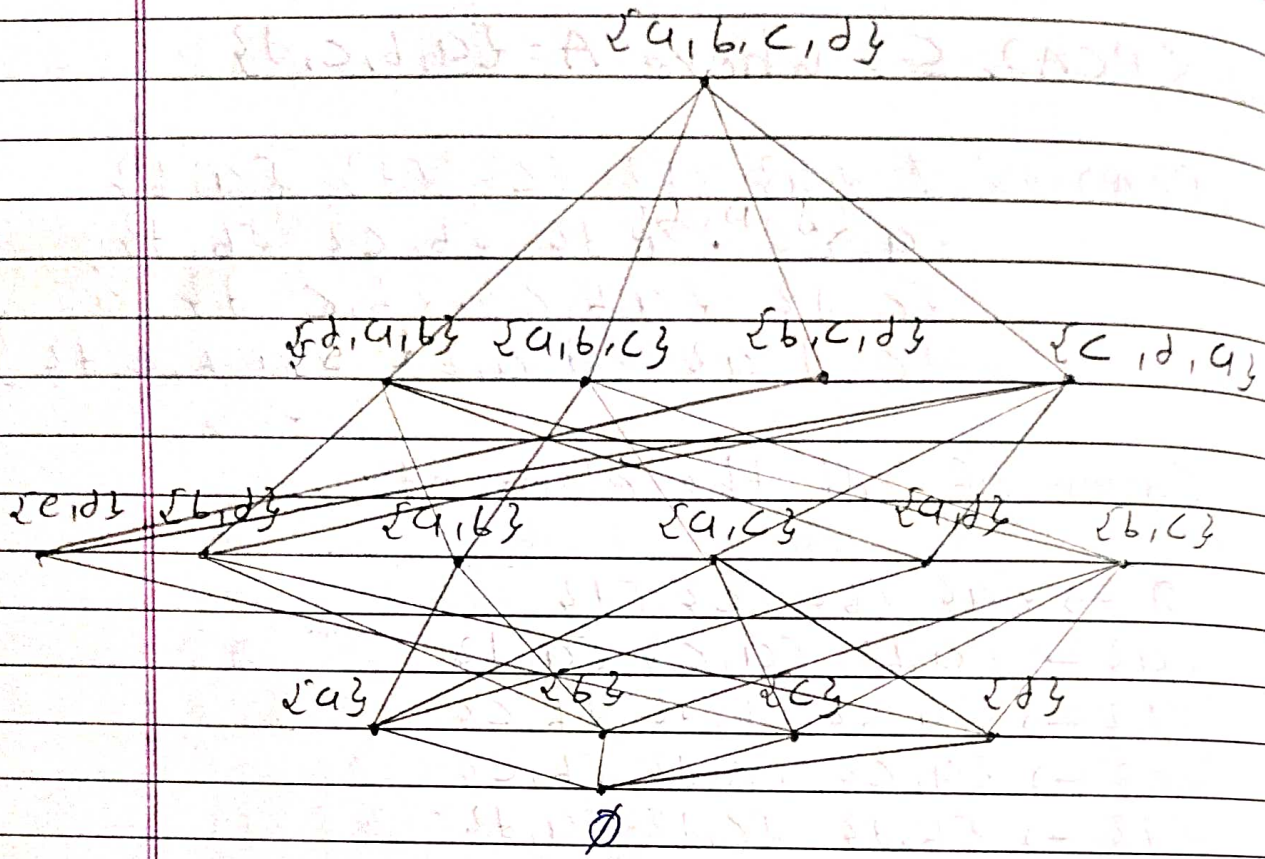 {a, b, c, d}
{d, a, b} {a, b, c} {b, c, d} {c, d, a}
{c, d} {b, d} {a, b} {a, c} {a, d} {b, c}
{a} {b} {c} {d}
∅